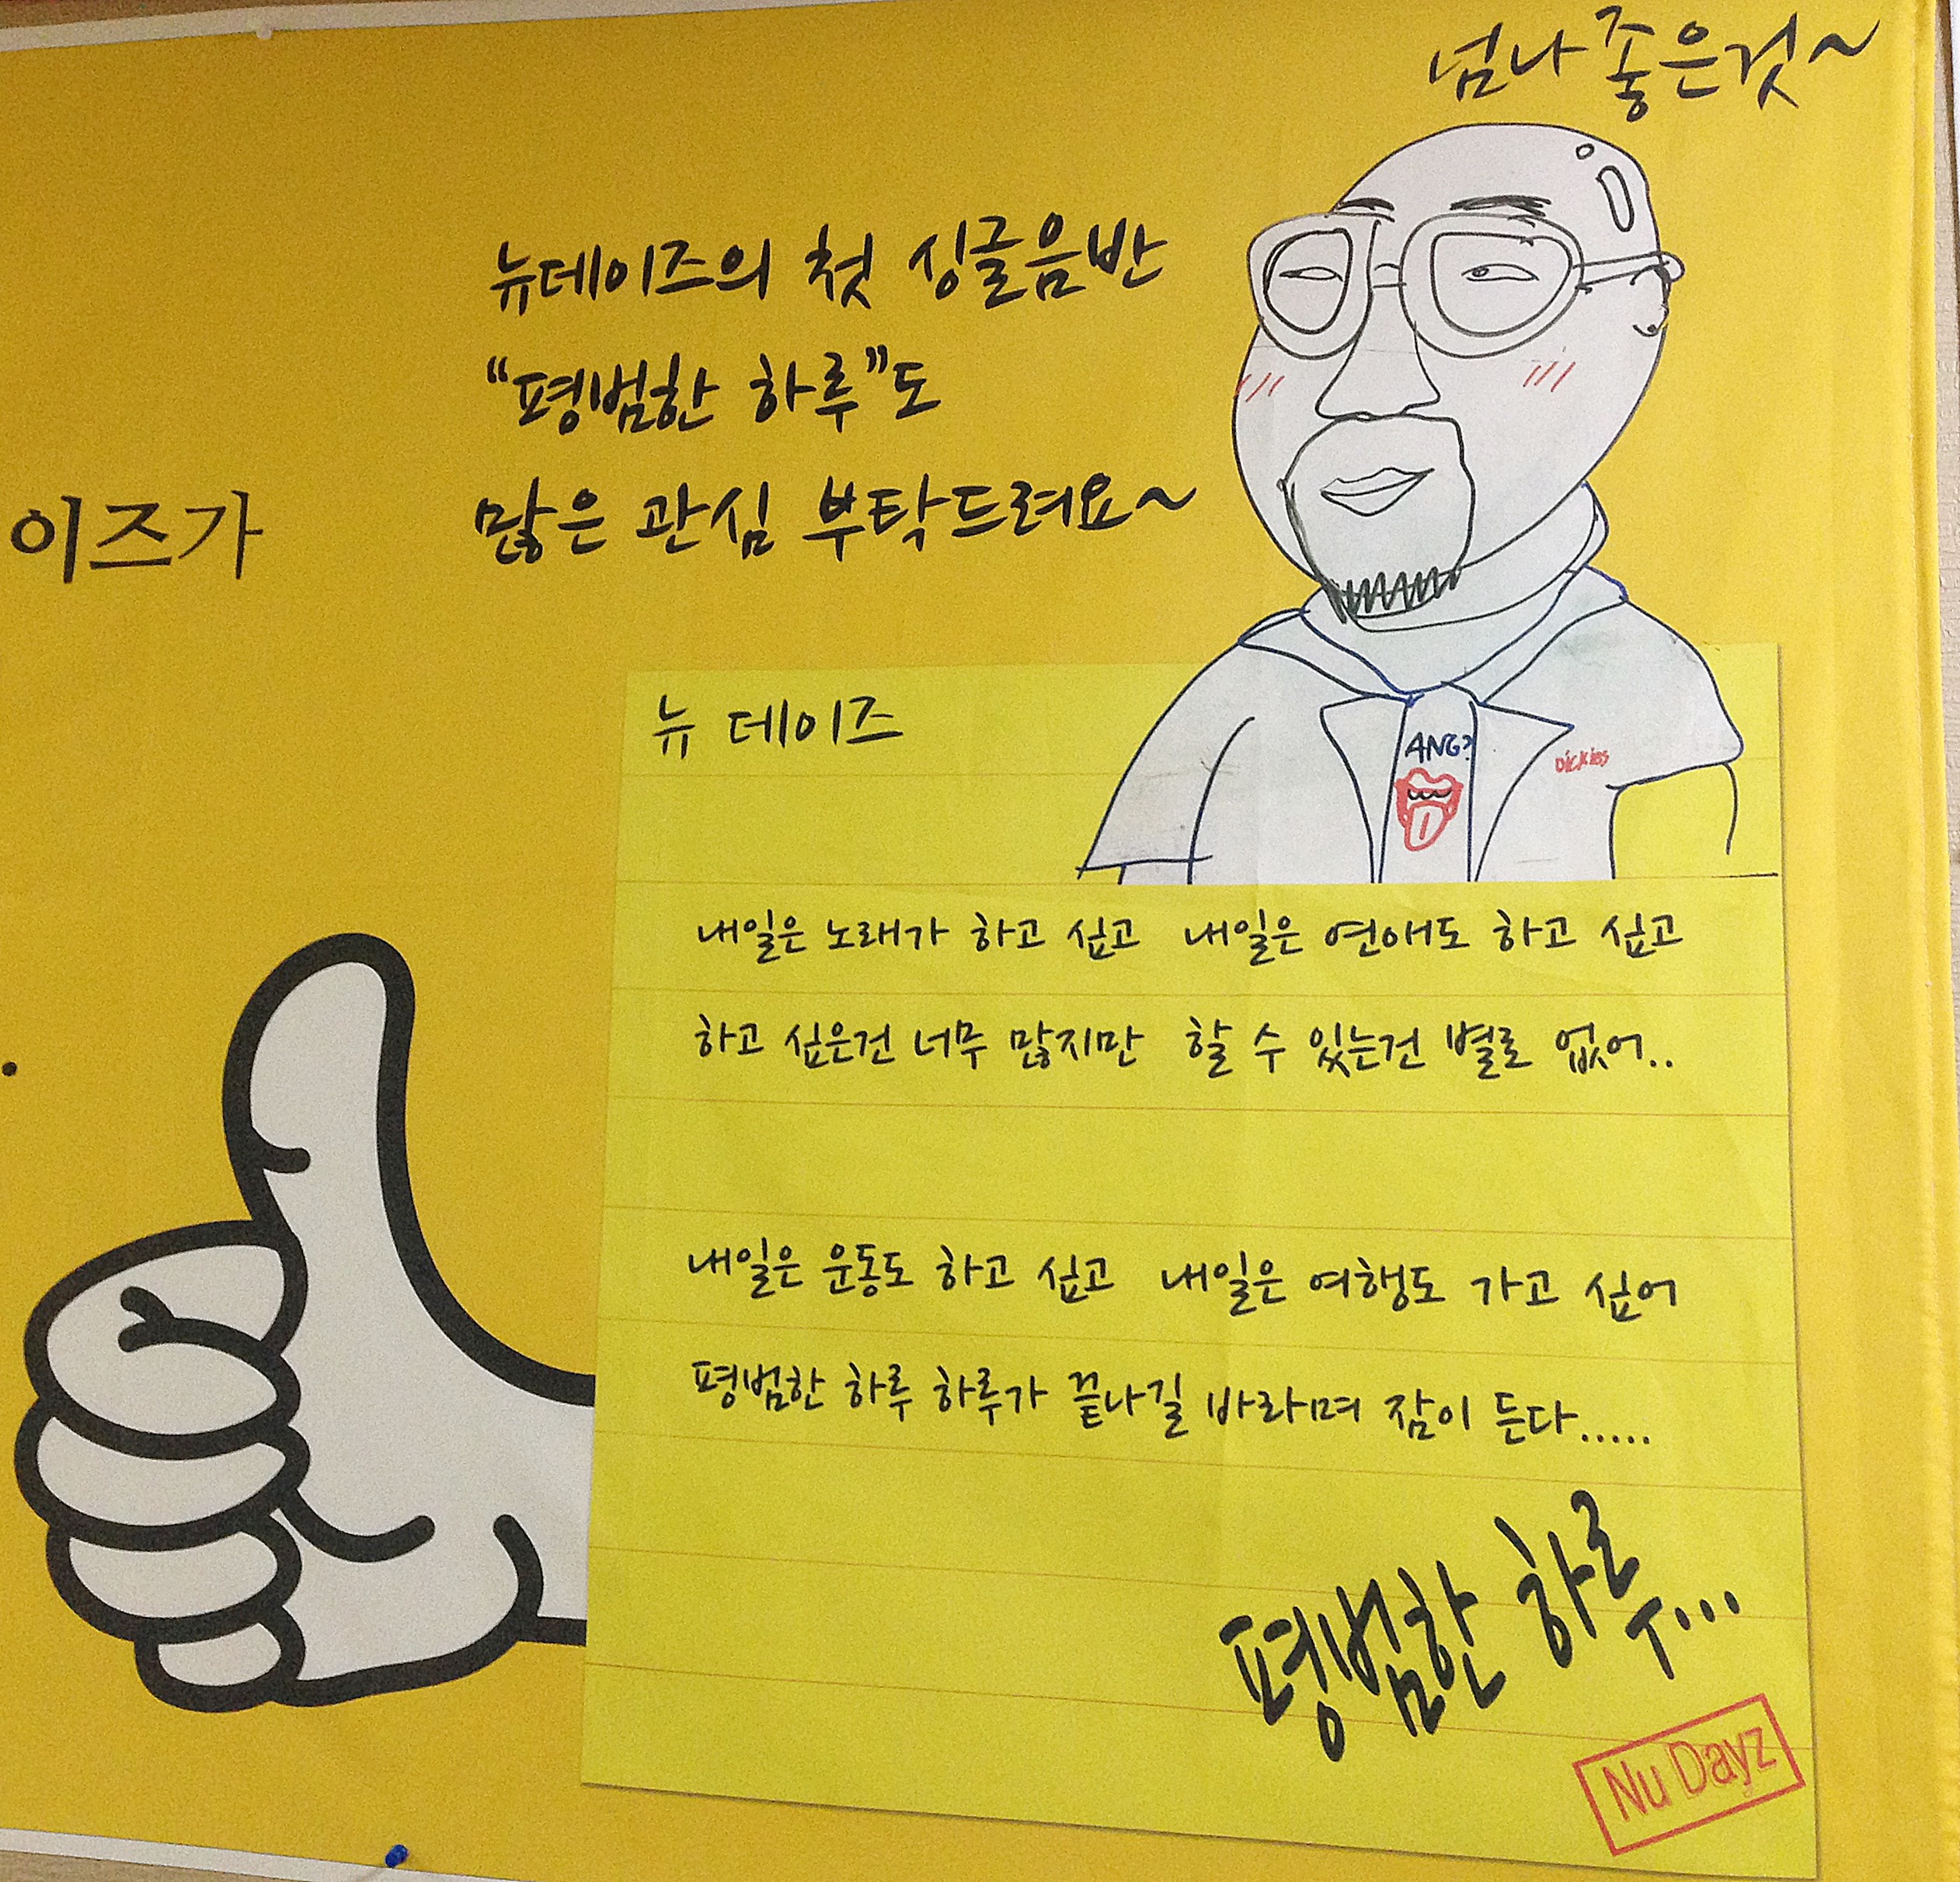 넘나 좋은것~
뉴데이즈의 첫 싱글음반
“평범한 하루”도
많은 관심 부탁드려요~
이즈가
뉴 데이즈
ANG?
Dickies
내일은 노래가 하고 싶고 내일은 연애도 하고 싶고
하고 싶은건 너무 많지만 할 수 있는건 별로 없어..
내일은 운동도 하고 싶고 내일은 여행도 가고 싶어
평범한 하루 하루가 끝나길 바라며 잠이 든다.....
평범한 하루...
Nu Dayz